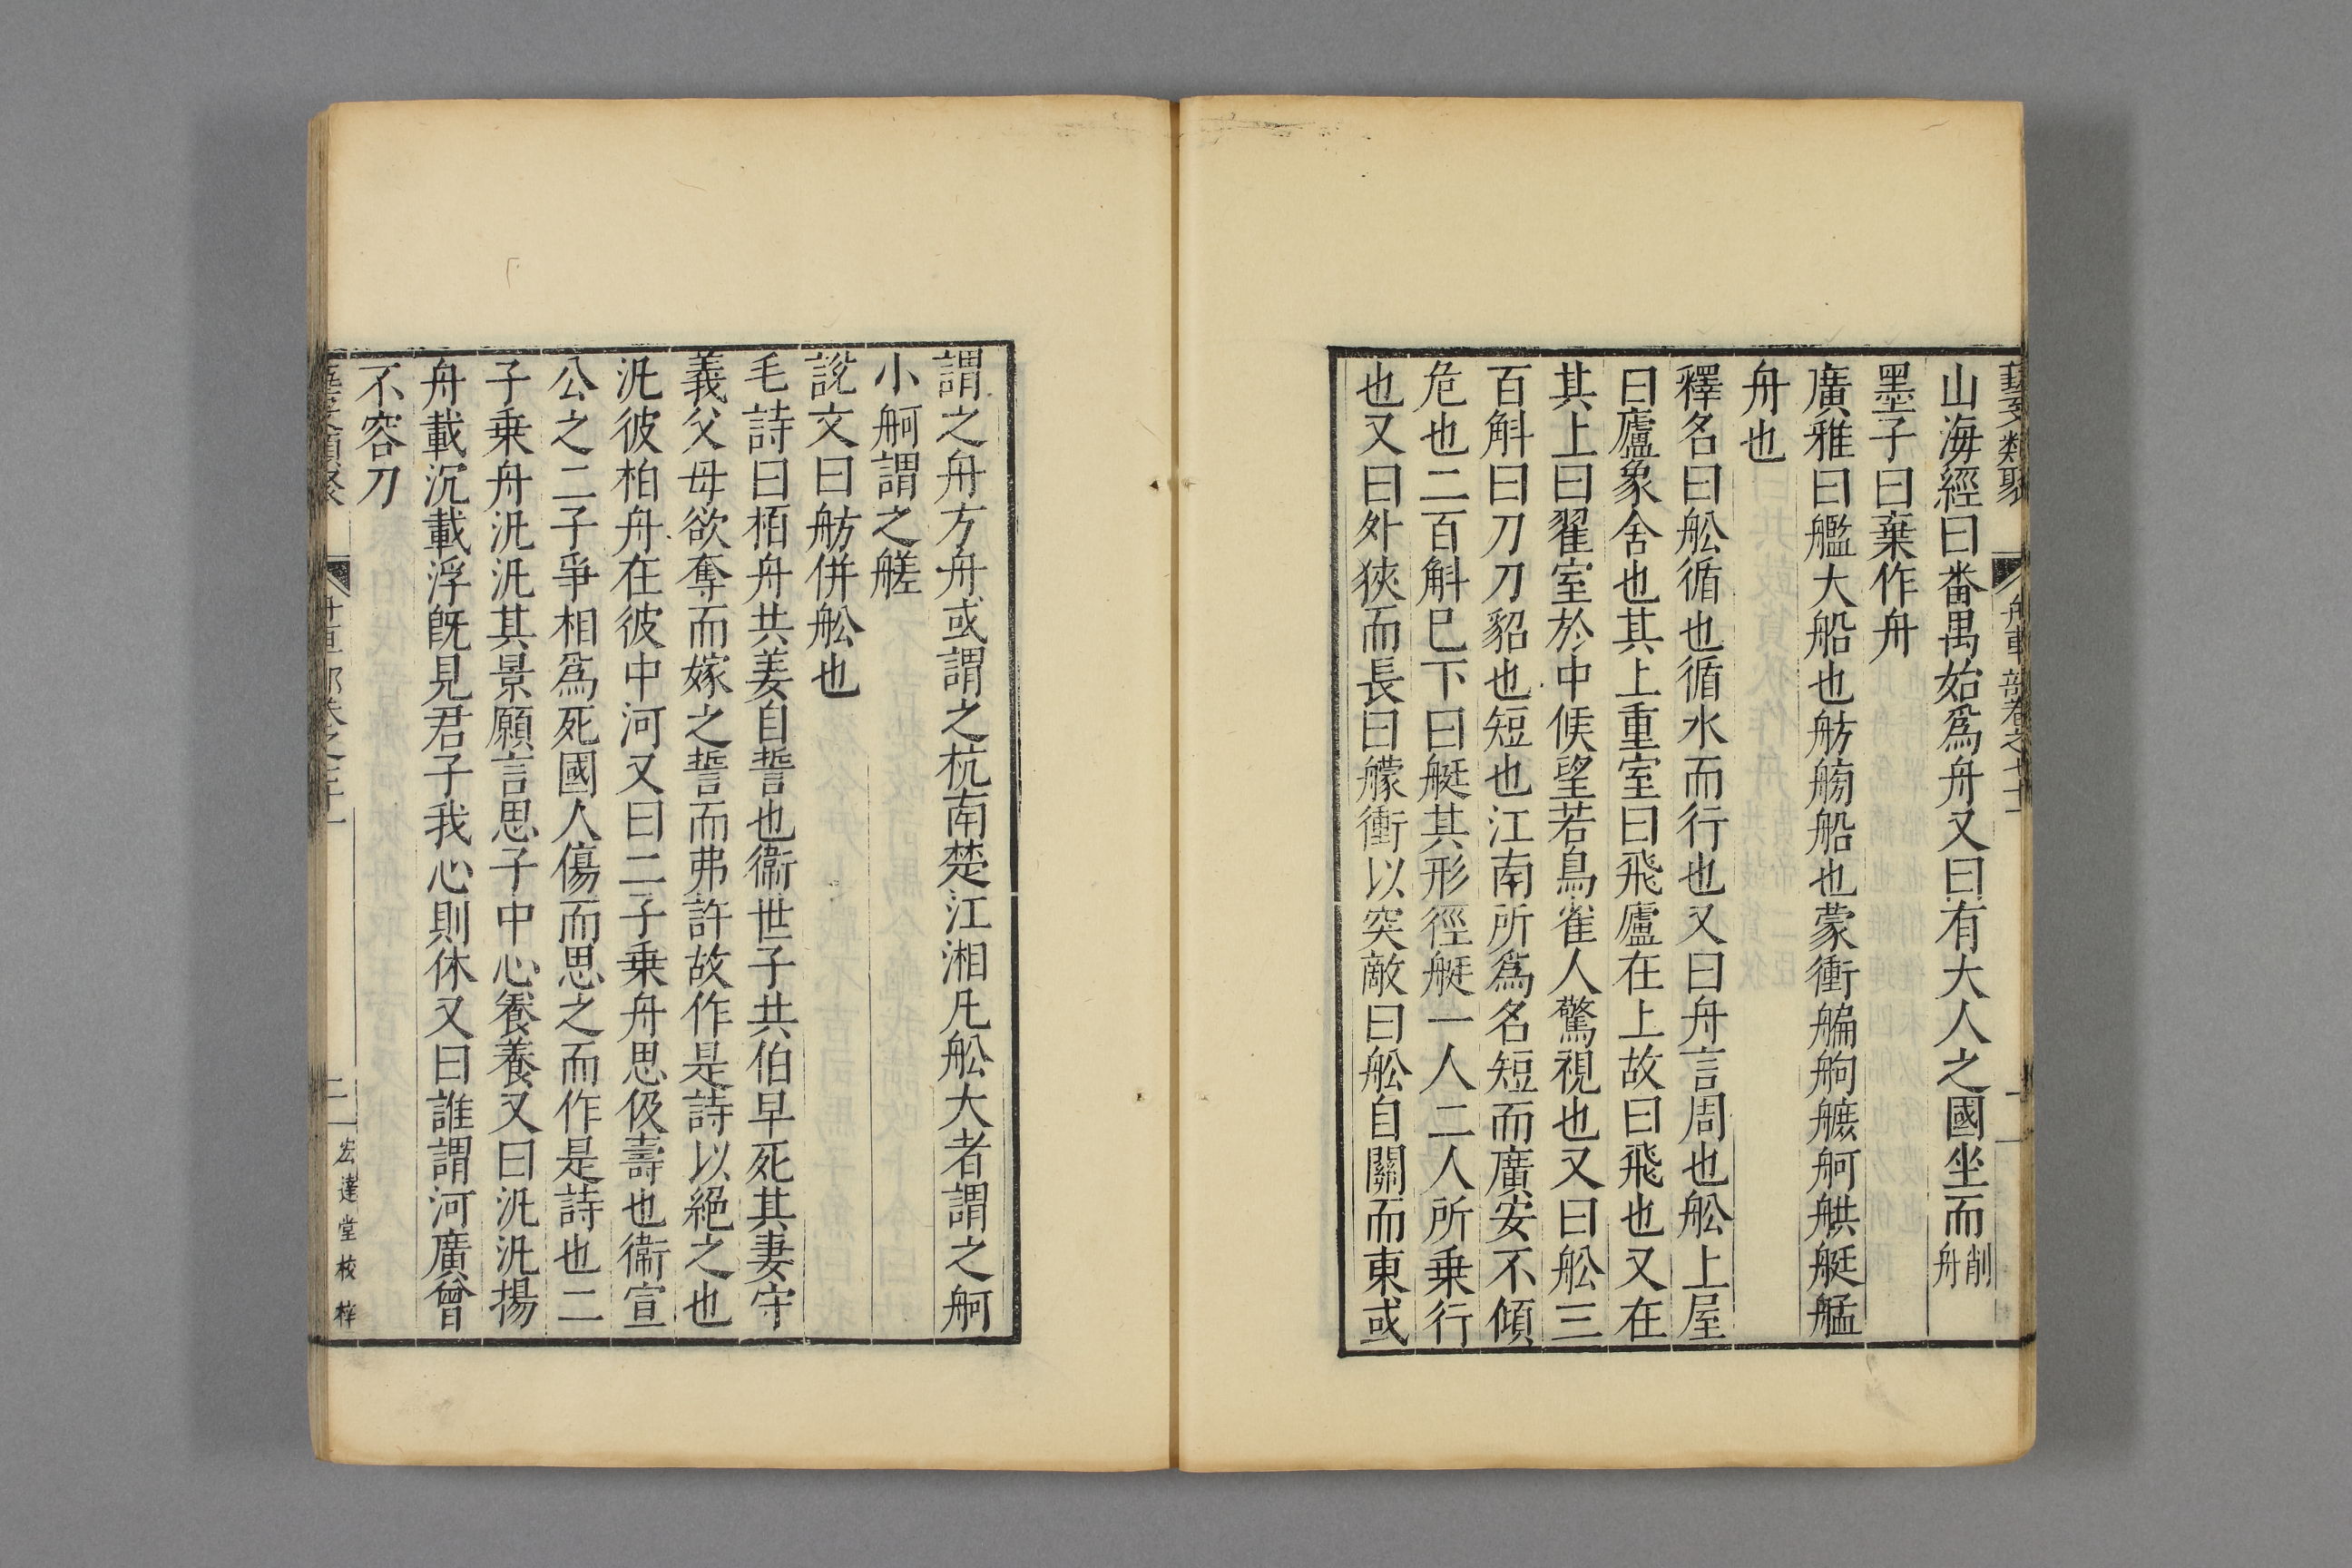 藝文類聚 舟車部卷之七十一
山海經曰番禺始爲舟又曰有大人之國坐而削舟
墨子曰棄作舟
廣雅曰艦大船也舫艕船也蒙衝艑䑦艜舸䑨艇艋
舟也
釋名曰舩循也循水而行也又曰舟言周也舩上屋
曰廬象舍也其上重室曰飛廬在上故曰飛也又在
其上曰翟室於中候望若鳥雀人驚視也又曰舩三
百斛曰刀刀貂也短也江南所爲名短而廣安不傾
危也二百斛已下曰艇其形徑艇一人二人所乗行
也又曰外狹而長曰艨衝以突敵曰舩自關而東或
謂之舟方舟或謂之杭南楚江湘凡舩大者謂之舸
小舸謂之艖
說文曰舫併舩也
毛詩曰栢舟共姜自誓也衞世子共伯早死其妻守
義父母欲奪而嫁之誓而弗許故作是詩以絕之也
汎彼柏舟在彼中河又曰二子乗舟思伋壽也衞宣
公之二子爭相爲死國人傷而思之而作是詩也二
子乗舟汎汎其景願言思子中心養養又曰汎汎揚
舟載沉載浮旣見君子我心則休又曰誰謂河廣曾
不容刀
二 宏達堂校梓